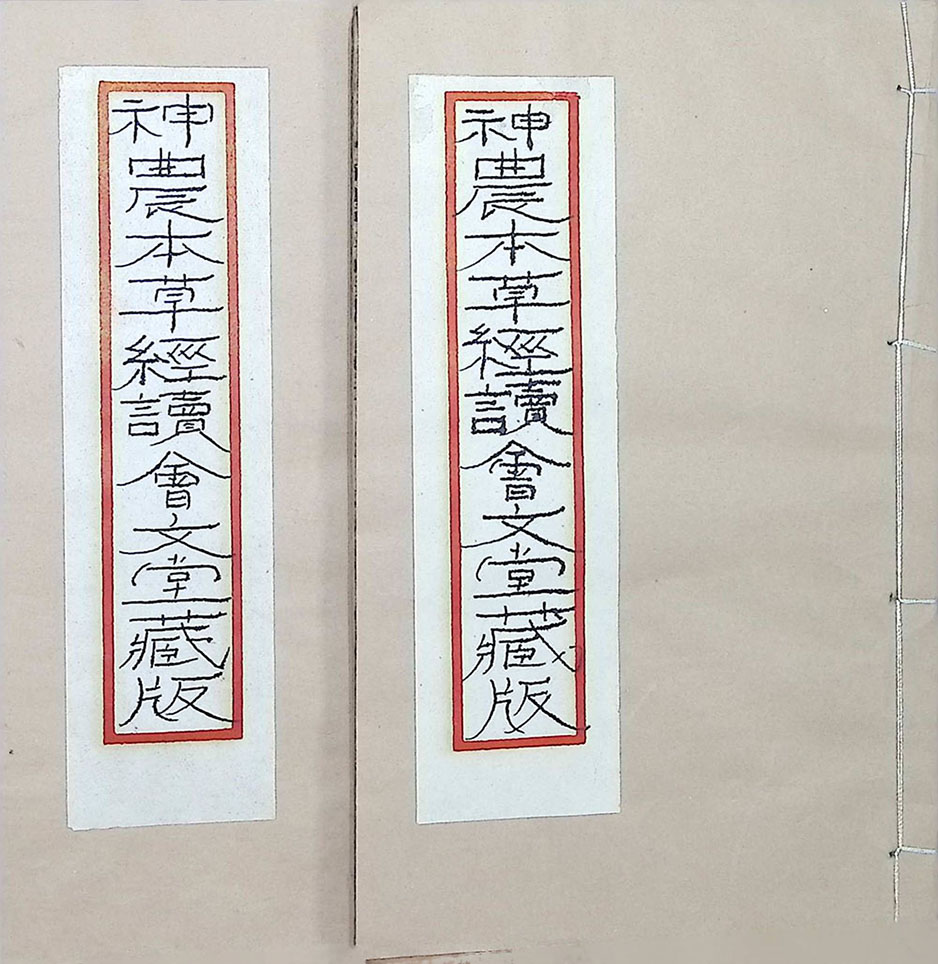 神農本草經讀會文堂藏版
神農本草經讀會文堂藏版